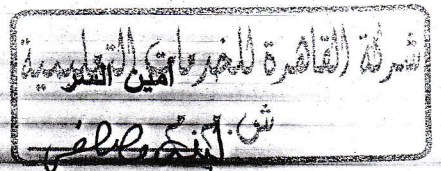 شركة القاهرة للخدمات التعليمية
أمين السر
ش.م.م